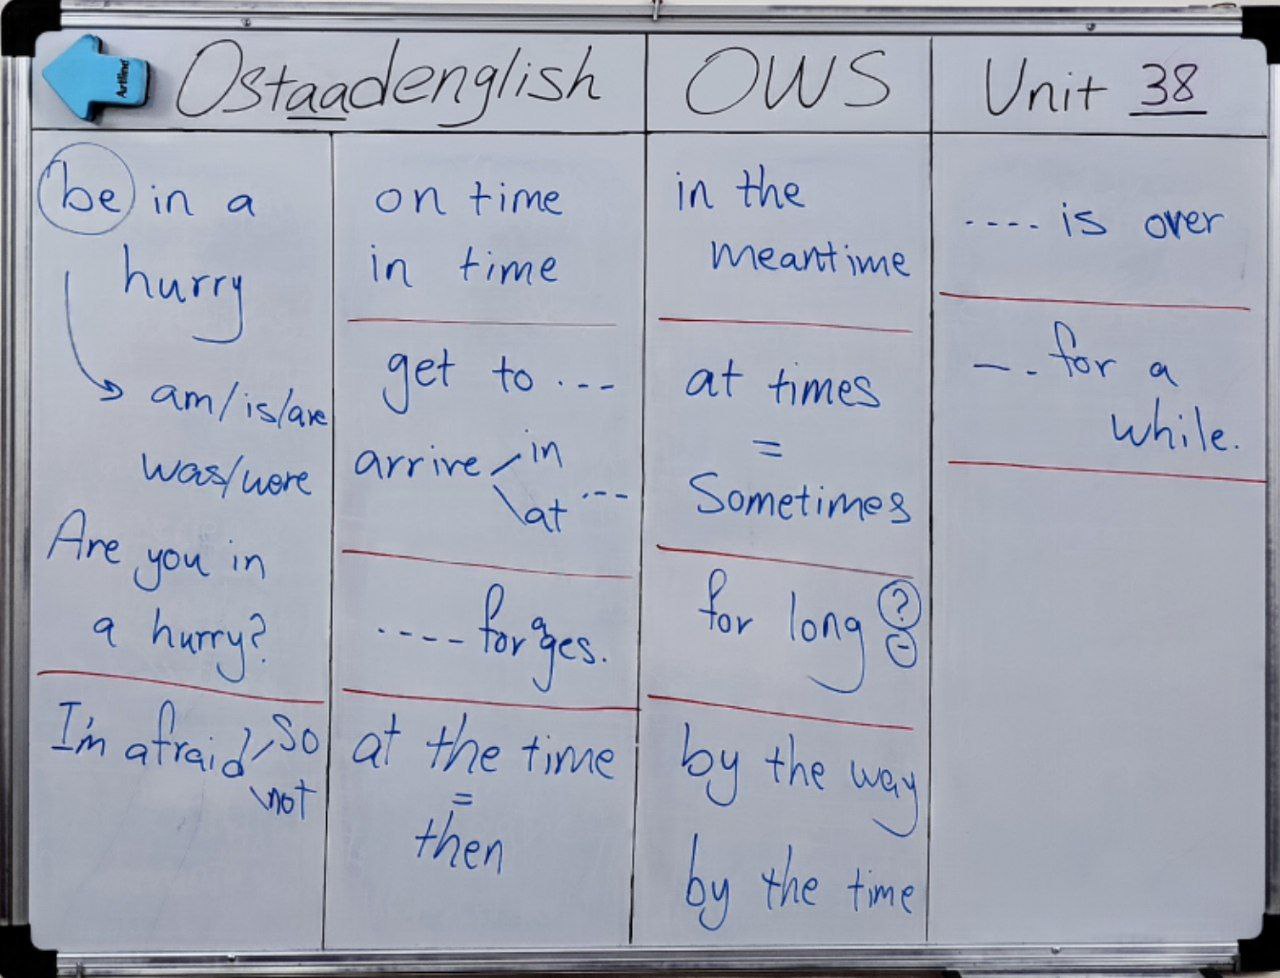 Artline
Ostaadenglish
OWS
Unit 38
be in a
hurry
am/is/are
was/were
Are you in
a hurry?
I'm afraid so
not
on time
in time
get to ...
arrive in
at ...
.... for ages.
at the time
=
then
in the
meantime
at times
=
Sometimes
for long ?
-
by the way
by the time
.... is over
-.. for a
while.